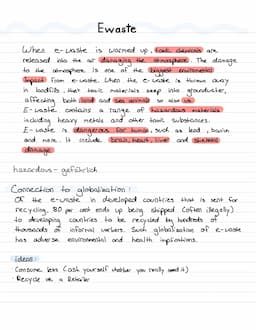 Ewaste
When e-waste is warmed up, toxic chemicals are
released into the air damaging the atmosphere. The damage
to the atmosphere is one of the biggest enviromental
impact from e-waste. When the e-waste is thrown away
in landfills, their toxic materials seep into groundwater,
affecting both land and sea animals so also us.
E-waste contains a range of hazardous materials
including heavy metals and other toxic substances.
E-waste is dangerous for humans, such as lead, barium
and more. It include brain, heart, liver and skeletal
damage.
hazardous - gefährlich
Connection to globalisation:
Of the e-waste in developed countries that is sent for
recycling, 80 per cent ends up being shipped (often illegally)
to developing countries to be recycled by hundreds of
thousands of informal workers. Such globalization of e-waste
has adverse environmental and health implications.
Ideas
Consume less (ask yourself whether you really need it)
Recycle via a Retailer